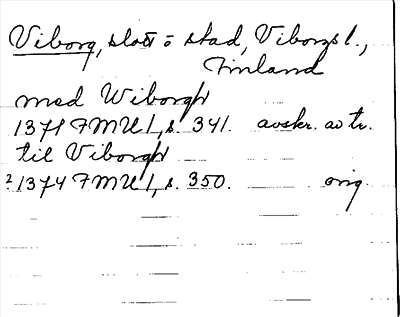 Viborg, slott o stad, Viborgs l.,
Finland
med Wiborgh
1371 FMU I, s. 341. avskr. av tr.
til Viborgh
2 1374 FMU I, s. 350. orig.